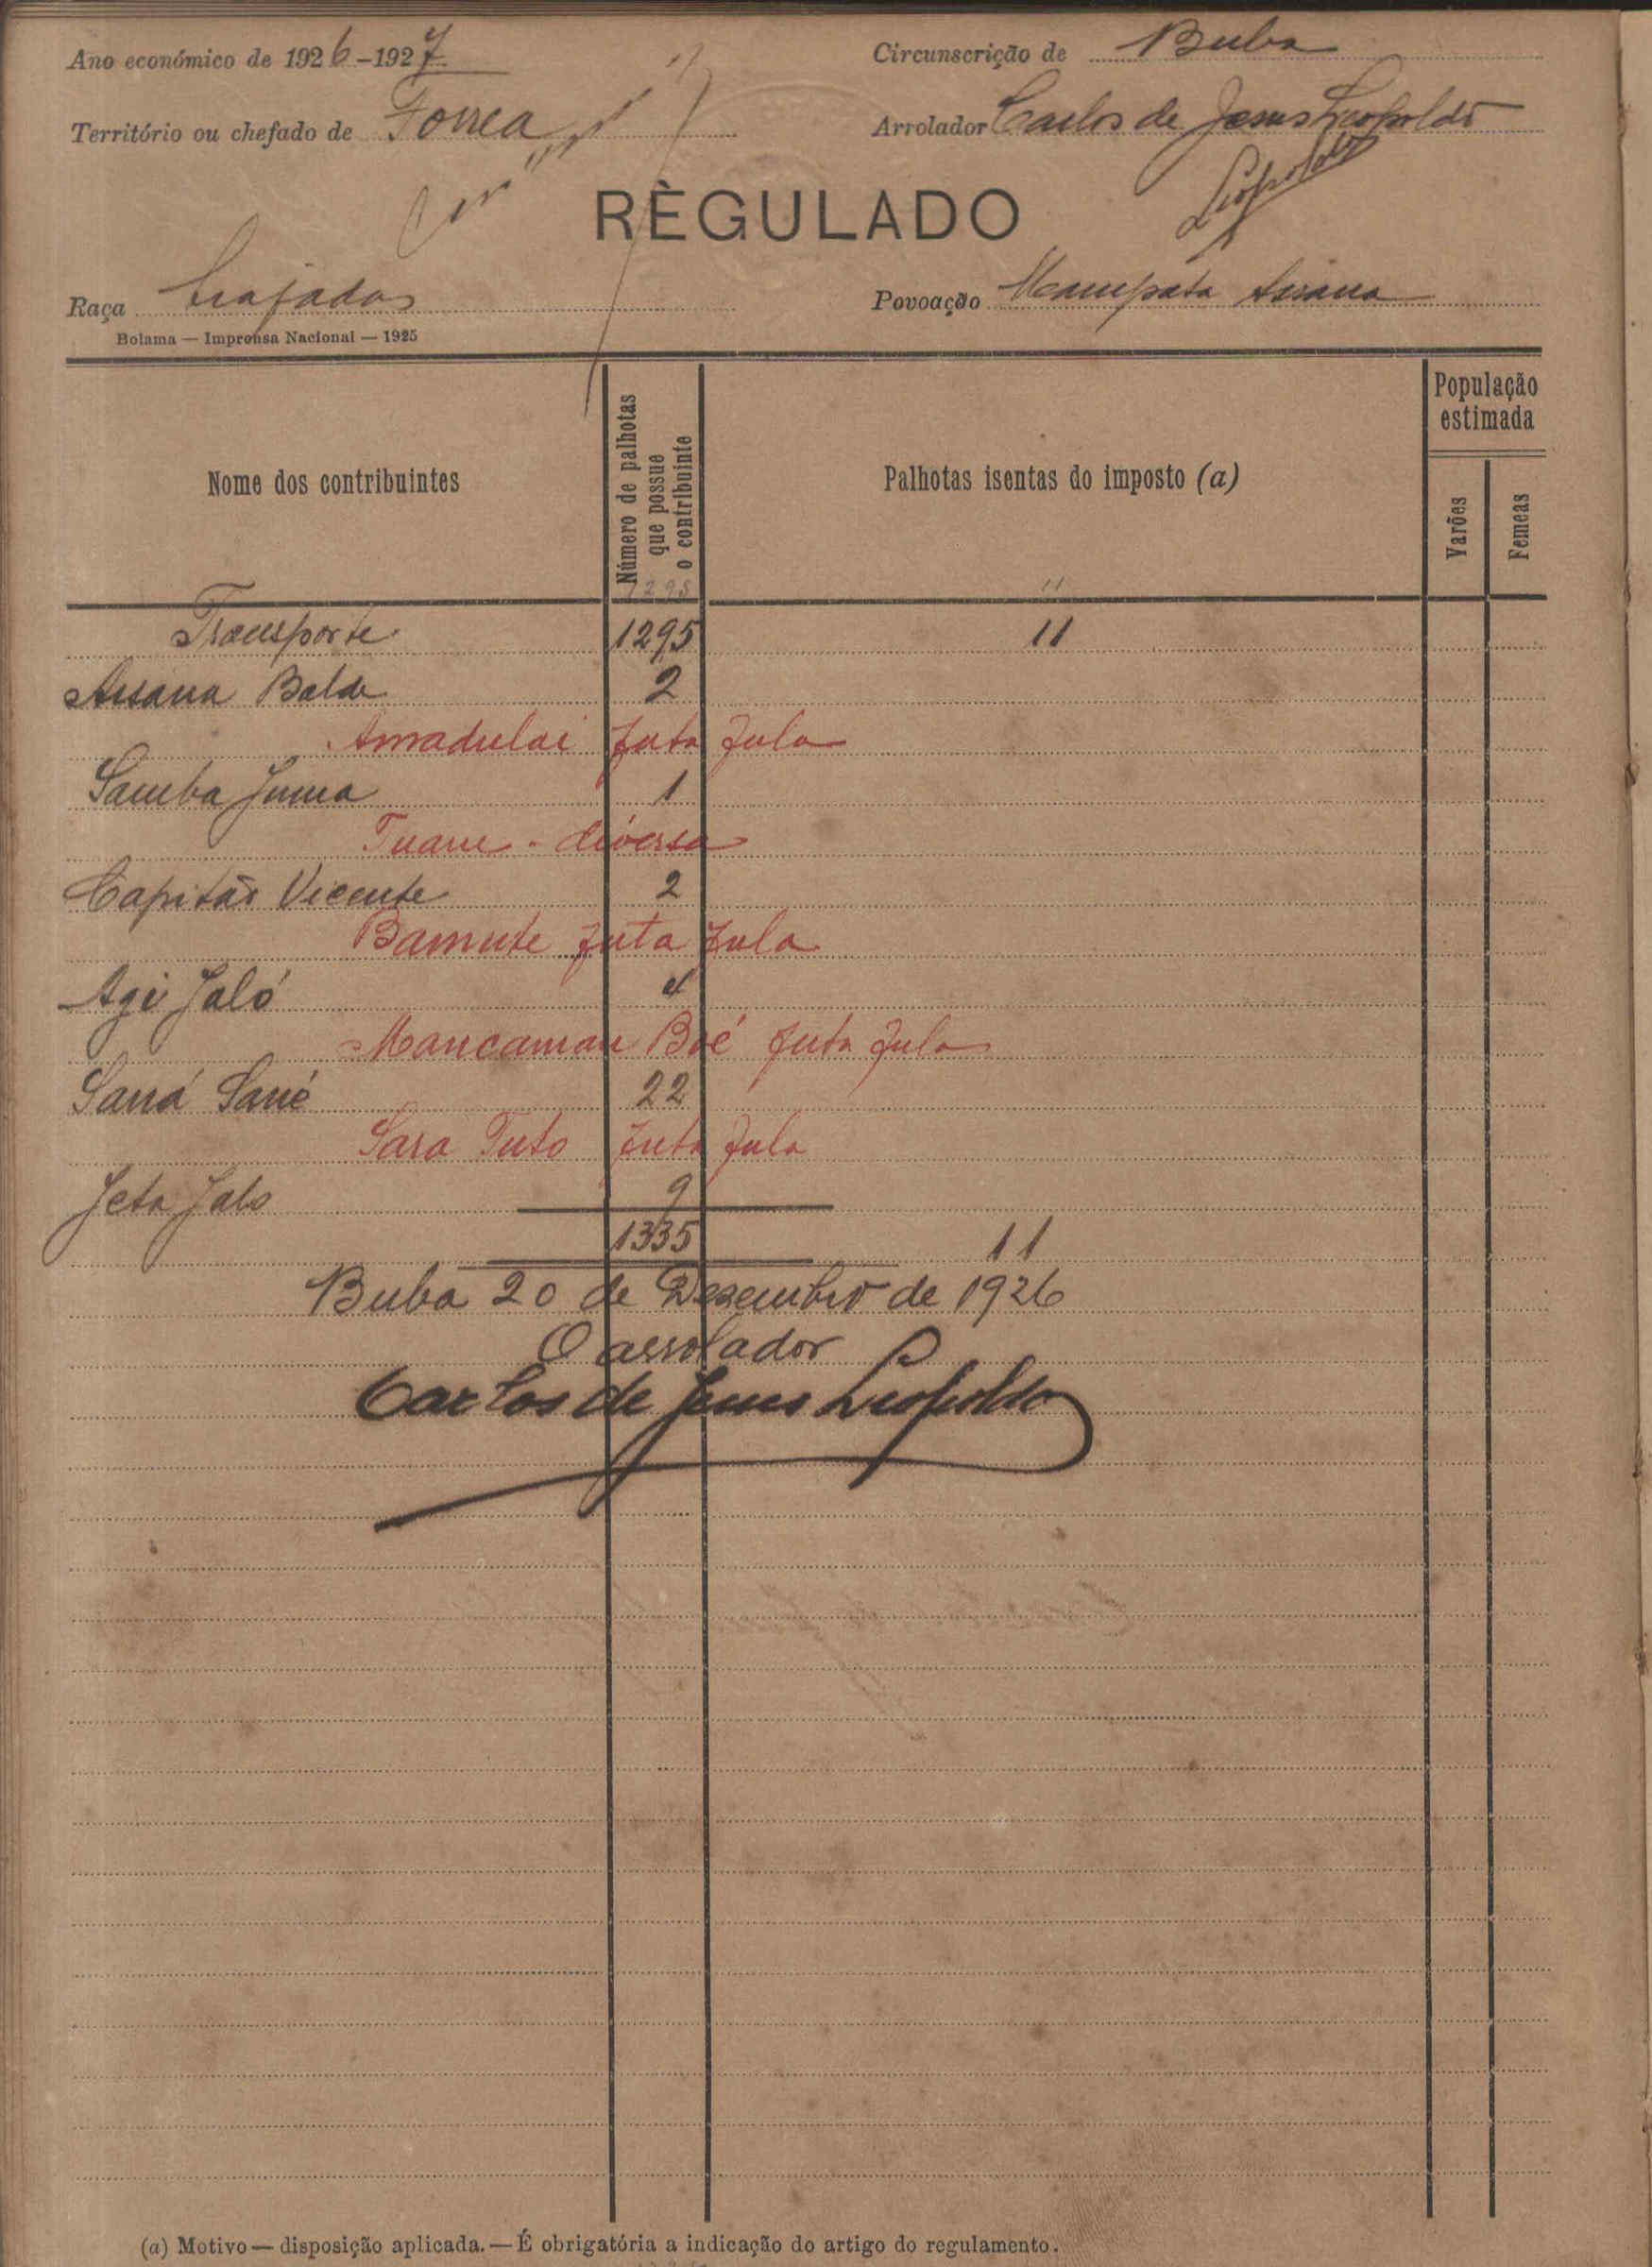 Ano económico de 1926-1927
Circunscrição de Buba
Território ou chefado de Forrea
Arrolador Carlos de Jesus Leopoldo
Leopoldo
RÈGULADO
Raça biafadas
Povoação Mampata
Bolama — Imprensa Nacional — 1925
Nome dos contribuintes
Número de palhotas que possue o contribuinte
Palhotas isentas do imposto (a)
População estimada
Varões
Femeas
1295 11
Transporte 1295 11
Assana Balde 2
Amadulai futa fula
Samba Juma 1
Tuane - diversa
Capitão Vicente 2
Bamute futa fula
Agi Jaló 4
Mancaman Boé futa fula
Saná Sané 22
Sara Tuto futa fula
Jeta Jalo 9
1335 11
Buba 20 de Dezembro de 1926
O arrolador
Carlos de Jesus Leopoldo
(a) Motivo — disposição aplicada. — É obrigatória a indicação do artigo do regulamento.